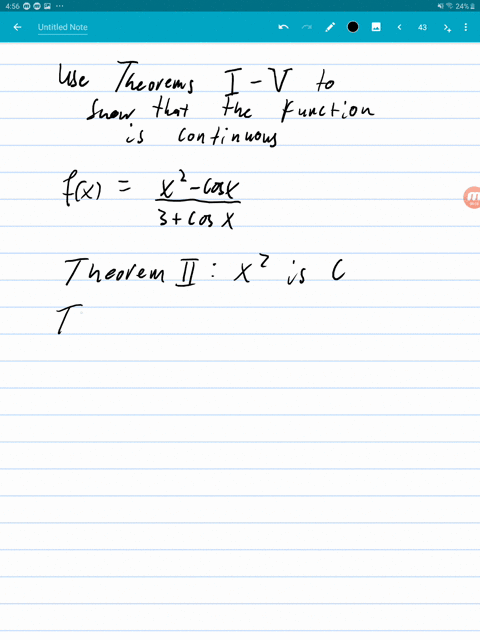 4:56
24%
Untitled Note
43
Use Theorems I - V to
show that the function
is continuous
f(x) = x² - cosx / 3 + cos x
Theorem II : x² is C
T